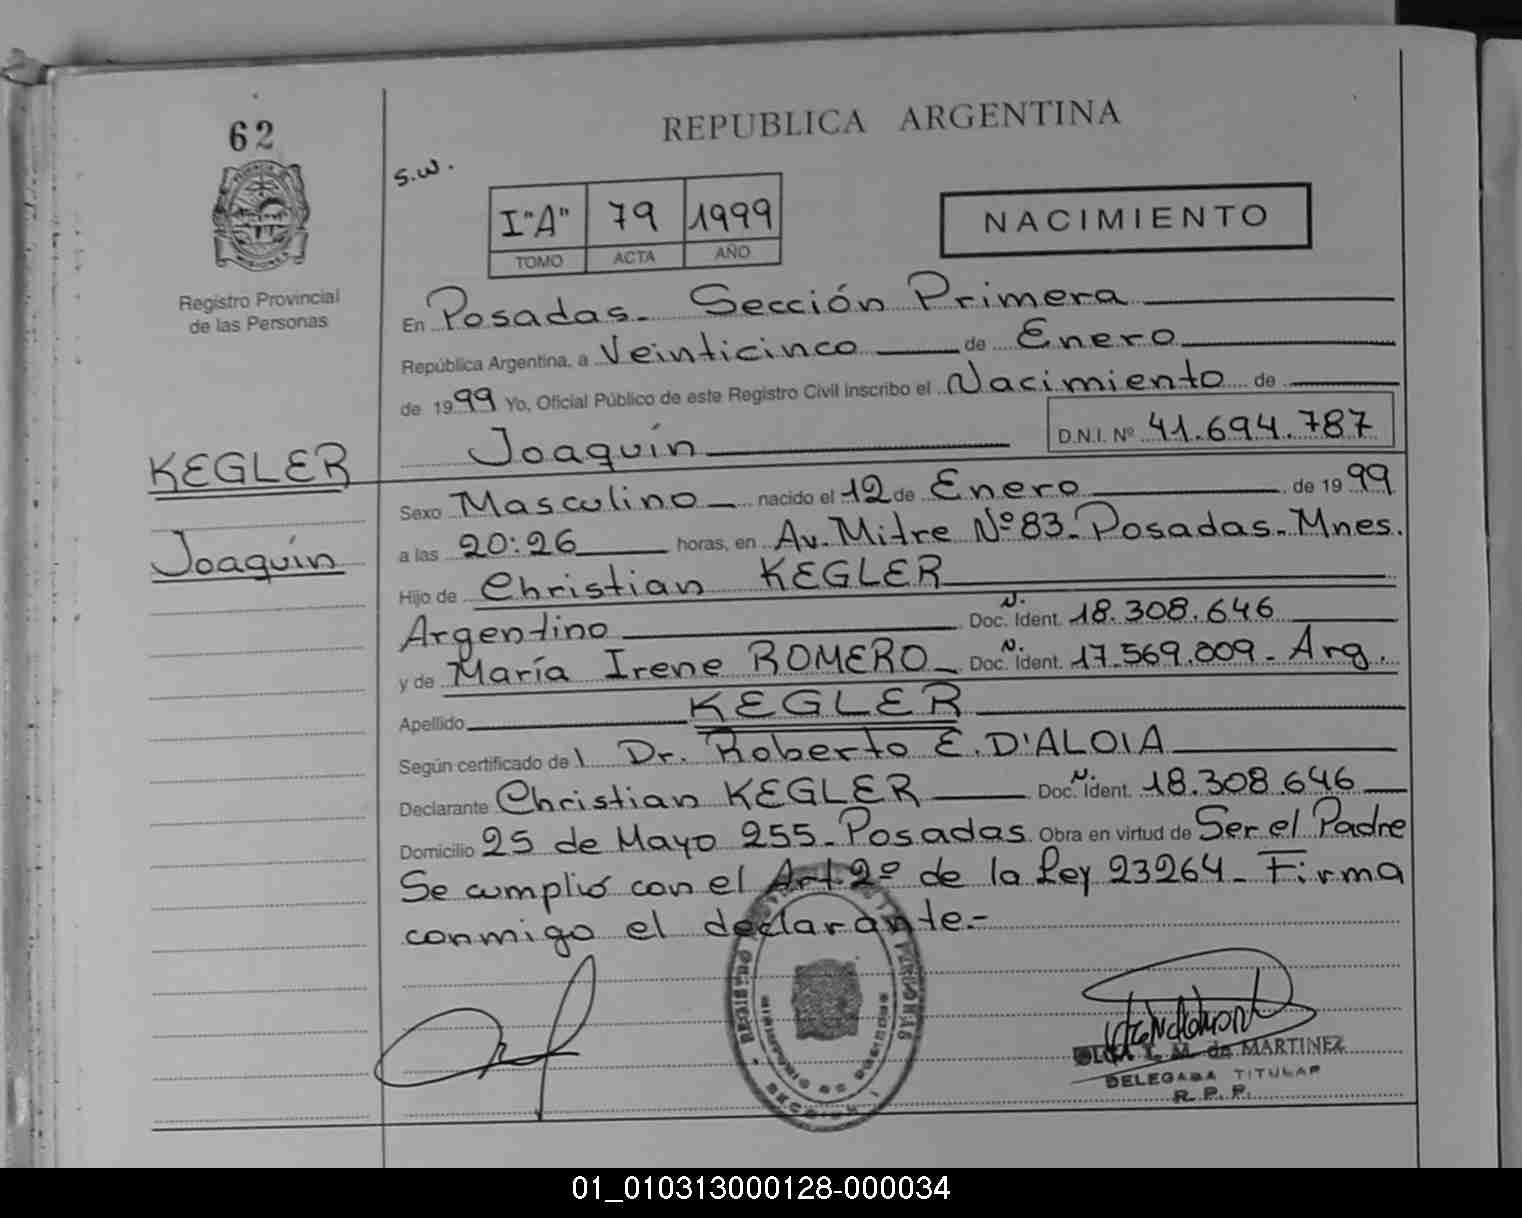 62
REPUBLICA ARGENTINA
s.w.
I"A" 79 1999
TOMO ACTA AÑO
NACIMIENTO
Registro Provincial
de las Personas
En Posadas. Sección Primera
República Argentina, a Veinticinco de Enero
de 1999 Yo, Oficial Público de este Registro Civil inscribo el Nacimiento de
Joaquín D.N.I. Nº 41.694.787
KEGLER
Joaquín
Sexo Masculino nacido el 12 de Enero de 1999
a las 20:26 horas, en Av. Mitre Nº 83. Posadas. Mnes.
Hijo de Christian KEGLER
Argentino Doc. N. Ident. 18.308.646
y de María Irene ROMERO Doc. N. Ident. 17.569.009 - Arg.
Apellido KEGLER
Según certificado del Dr. Roberto E. D'ALOIA
Declarante Christian KEGLER Doc. N. Ident. 18.308.646
Domicilio 25 de Mayo 255. Posadas. Obra en virtud de Ser el Padre
Se cumplió con el Art. 2º de la Ley 23264. Firma
conmigo el declarante.-
I. M. de MARTINEZ
DELEGADA TITULAR
R. P. P.
01_010313000128-000034